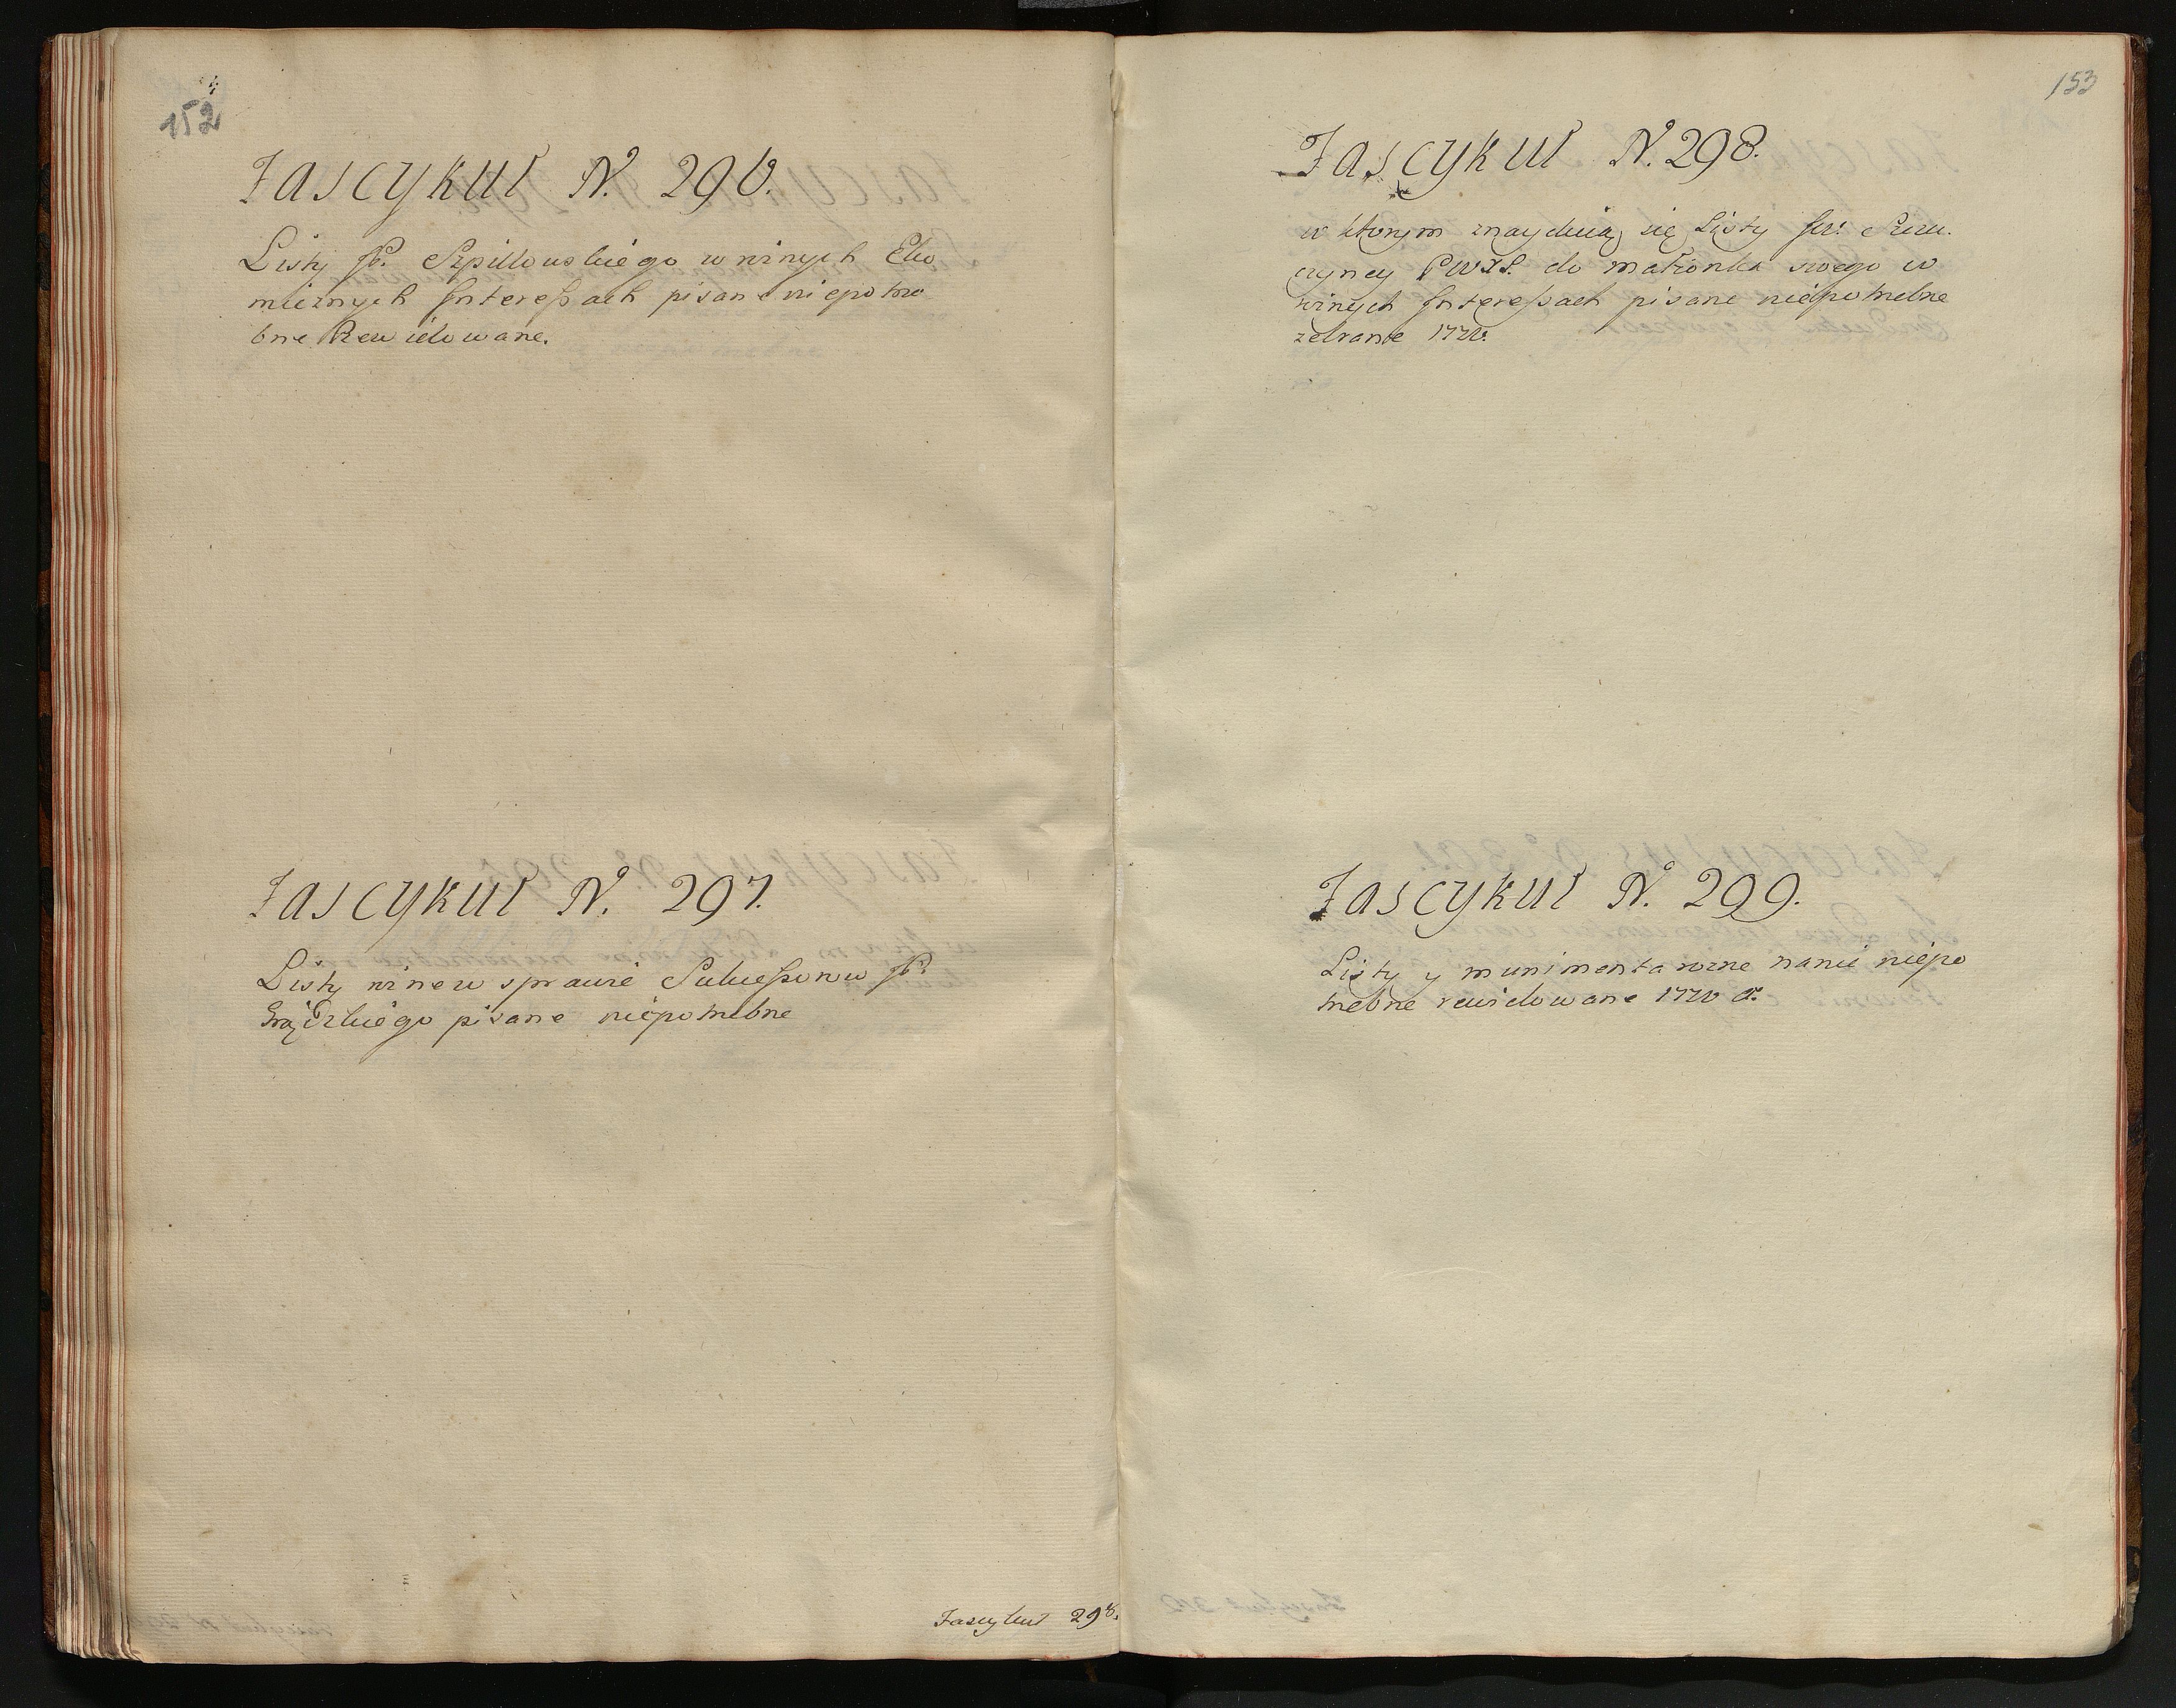 152
Fascykuł N. 296.
Listy JP. Szpillowskiego w rożnych Eko
micznych Interessach pisane niepotrze
bne Rewidowane.
Fascykuł N. 297.
Listy rożne w sprawie Sukcessorow JP.
pisane niepotrzebne
Fascykuł 298.
153
Fascykuł N. 298.
w ktorym znayduią się Listy
do małżonka swego w
rożnych Interessach pisane niepotrzebne
zebrane
Fascykuł N. 299.
Listy y munimenta rożne nanic niepo
trzebne rewidowane